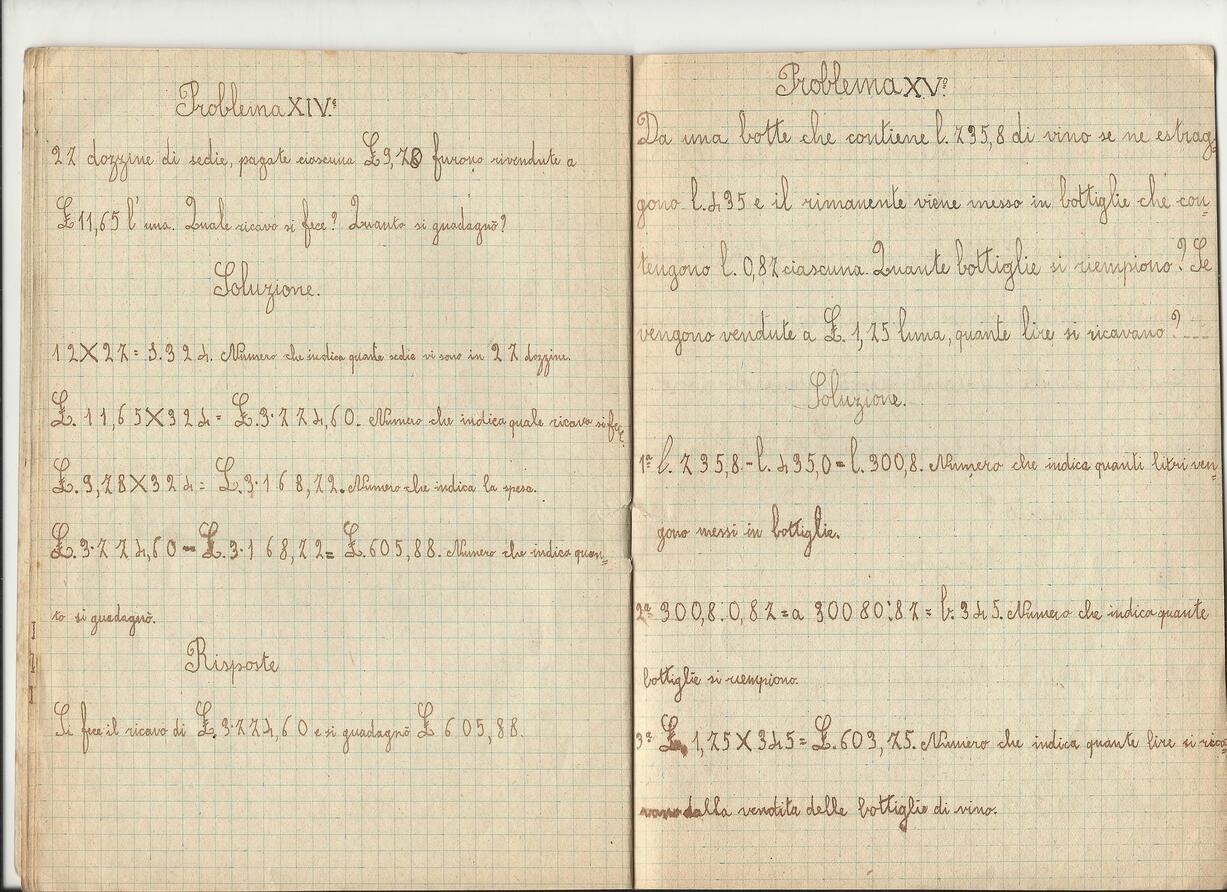 Problema XIV.º
27 dozzine di sedie, pagate ciascuna £9,78 furono rivendute a
£11,65 l'una. Quale ricavo si fece? Quanto si guadagnò?
Soluzione.
12X27= 324. Numero che indica quante sedie vi sono in 27 dozzine.
£. 11,65X324= £.3.774,60. Numero che indica quale ricavo si fece.
£. 9,78X324= £.3.168,72. Numero che indica la spesa.
£.3.774,60 - £.3.168,72= £605,88. Numero che indica quan=
to si guadagnò.
Risposte
Si fece il ricavo di £.3.774,60 e si guadagnò £ 605,88.
Problema XV.º
Da una botte che contiene l. 735,8 di vino se ne estrag=
gono l. 435 e il rimanente viene messo in bottiglie che con=
tengono l. 0,87 ciascuna. Quante bottiglie si riempiono? Se
vengono vendute a £. 1,75 luna, quante lire si ricavano?
Soluzione.
1ª l. 735,8 - l. 435,0 = l. 300,8. Numero che indica quanti litri ven=
gono messi in bottiglie.
2ª 300,8:0,87=a 30080:87= b. 345. Numero che indica quante
bottiglie si riempiono.
3ª £. 1,75X345= £. 603,75. Numero che indica quante lire si rica=
vano dalla vendita delle bottiglie di vino.